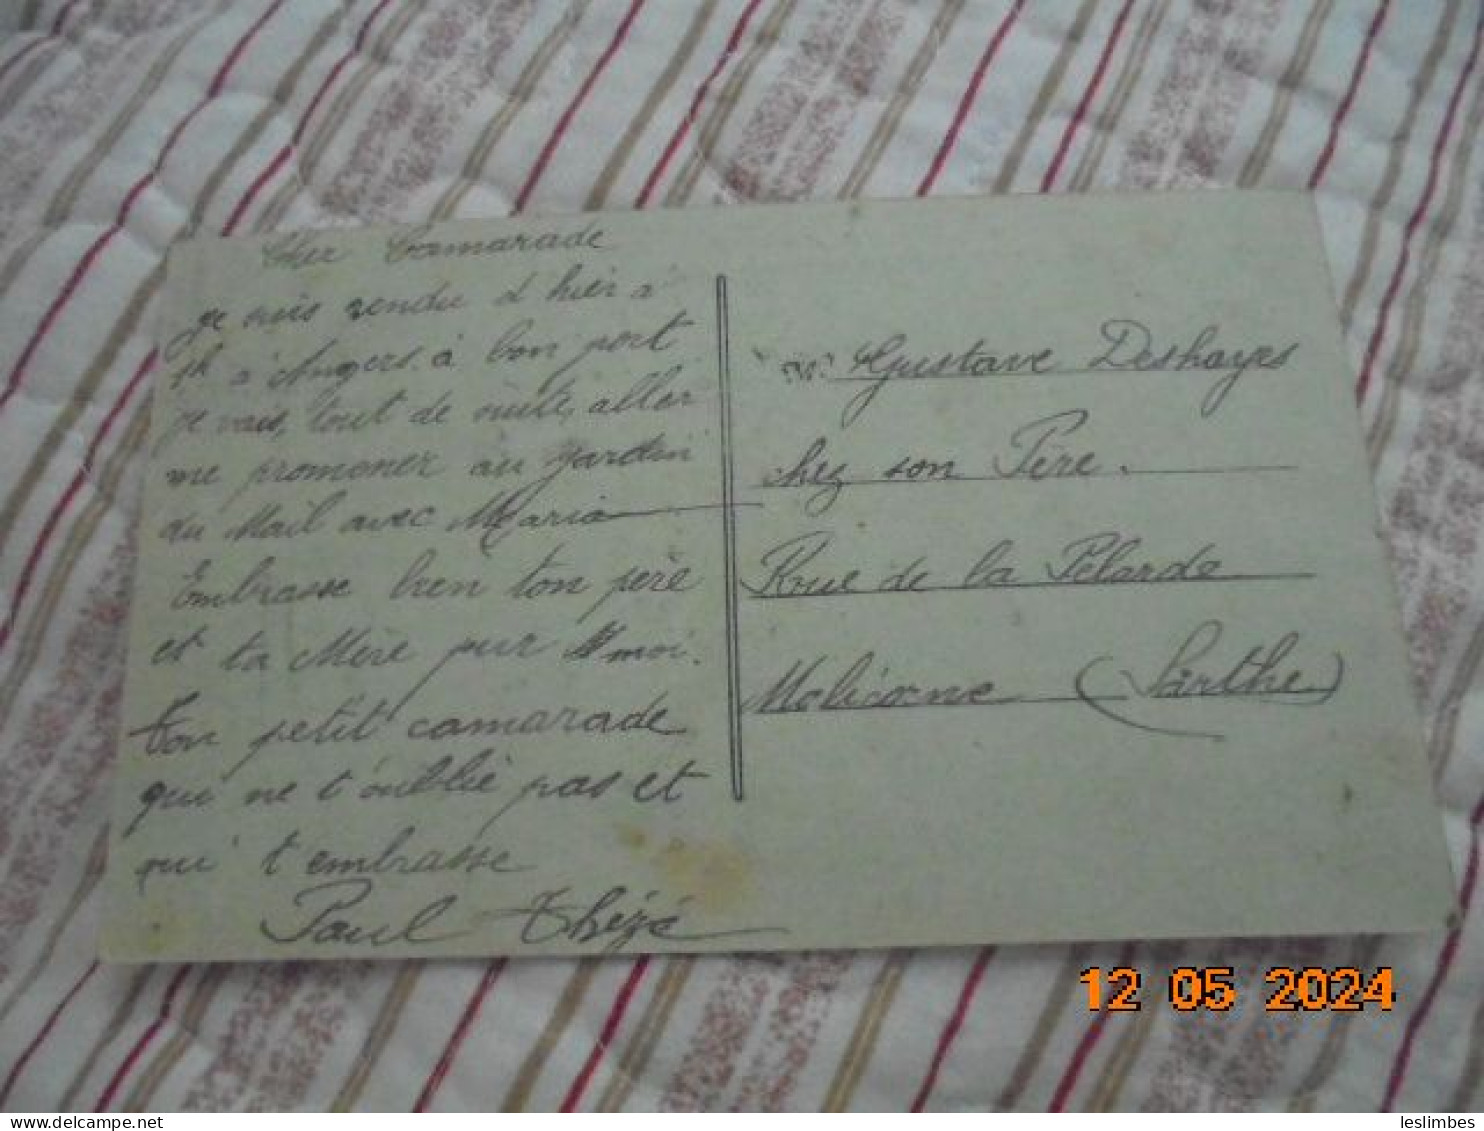 Cher Camarade
je suis rendu d'hier à
1h à Angers. à bon port
je vais, tout de suite, aller
me promener au Jardin
du Mail avec Maria
Embrasse bien ton père
et ta Mère pur moi.
Ton petit camarade
qui ne t'oublie pas et
qui t'embrasse
Paul Thézé
Gustave Deshayes
chez son Père.
Rue de la Pélarde
Malicorne (Sarthe)
12 05 2024
leslimbes